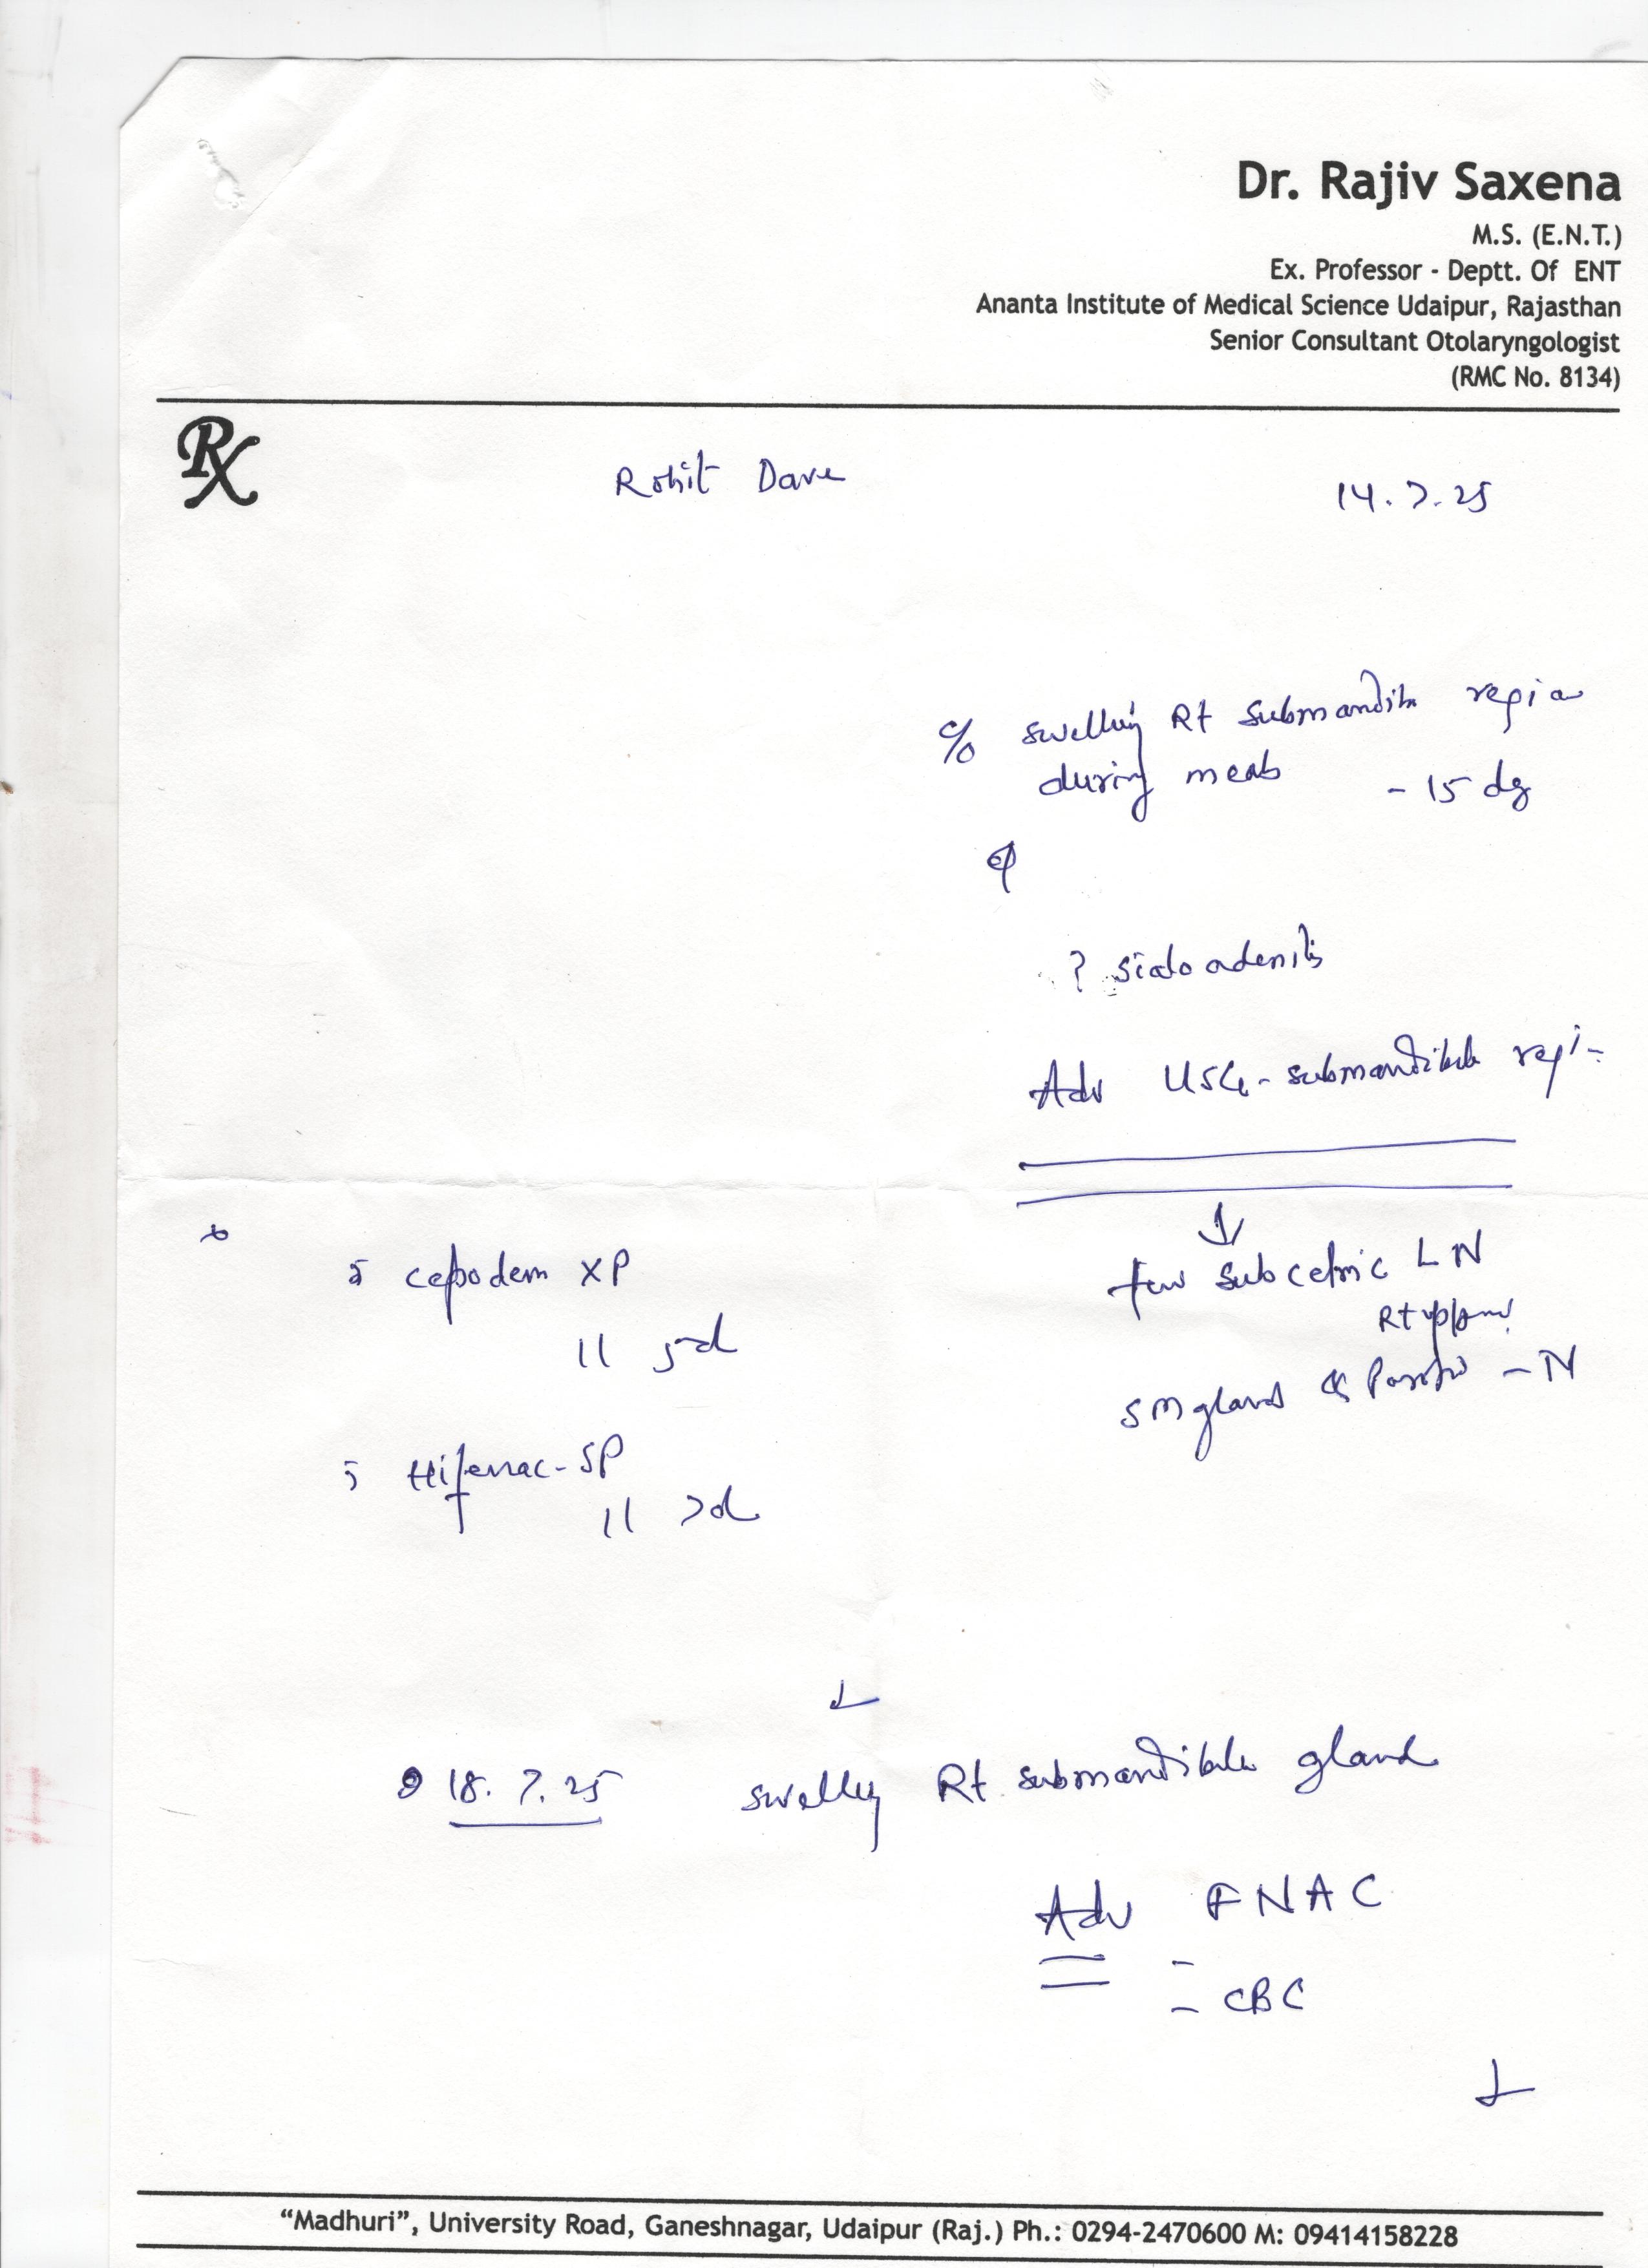 Dr. Rajiv Saxena
M.S. (E.N.T.)
Ex. Professor - Deptt. Of ENT
Ananta Institute of Medical Science Udaipur, Rajasthan
Senior Consultant Otolaryngologist
(RMC No. 8134)
Rx
Rohit Dave
14.7.25
c/o swelling Rt submandib region
during meals - 15 dy
? sialoadenitis
Adv USG - submandibular regi-
few subcetric LN
Rt
SM gland & Parotid - N
Cepodem XP
11 5d
Hifenac-SP
11 7d
18.7.25 swelling Rt submandibular gland
Adv FNAC
- CBC
"Madhuri", University Road, Ganeshnagar, Udaipur (Raj.) Ph.: 0294-2470600 M: 09414158228